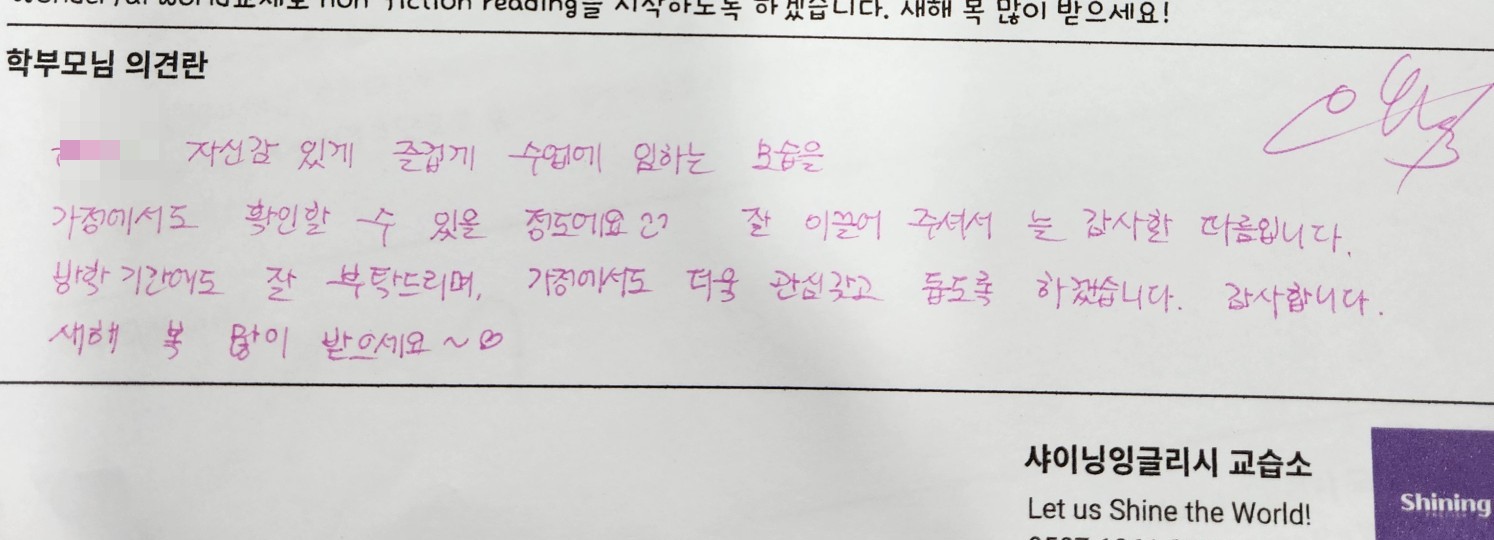 reading을 시작하도록 하겠습니다. 새해 복 많이 받으세요!
학부모님 의견란
자신감 있게 즐겁게 수업에 임하는 모습을
가정에서도 확인할 수 있을 정도예요^^ 잘 이끌어 주셔서 늘 감사할 따름입니다.
방학 기간에도 잘 부탁드리며, 가정에서도 더욱 관심갖고 돕도록 하겠습니다. 감사합니다.
새해 복 많이 받으세요~♡
샤이닝잉글리시 교습소
Let us Shine the World!
Shining